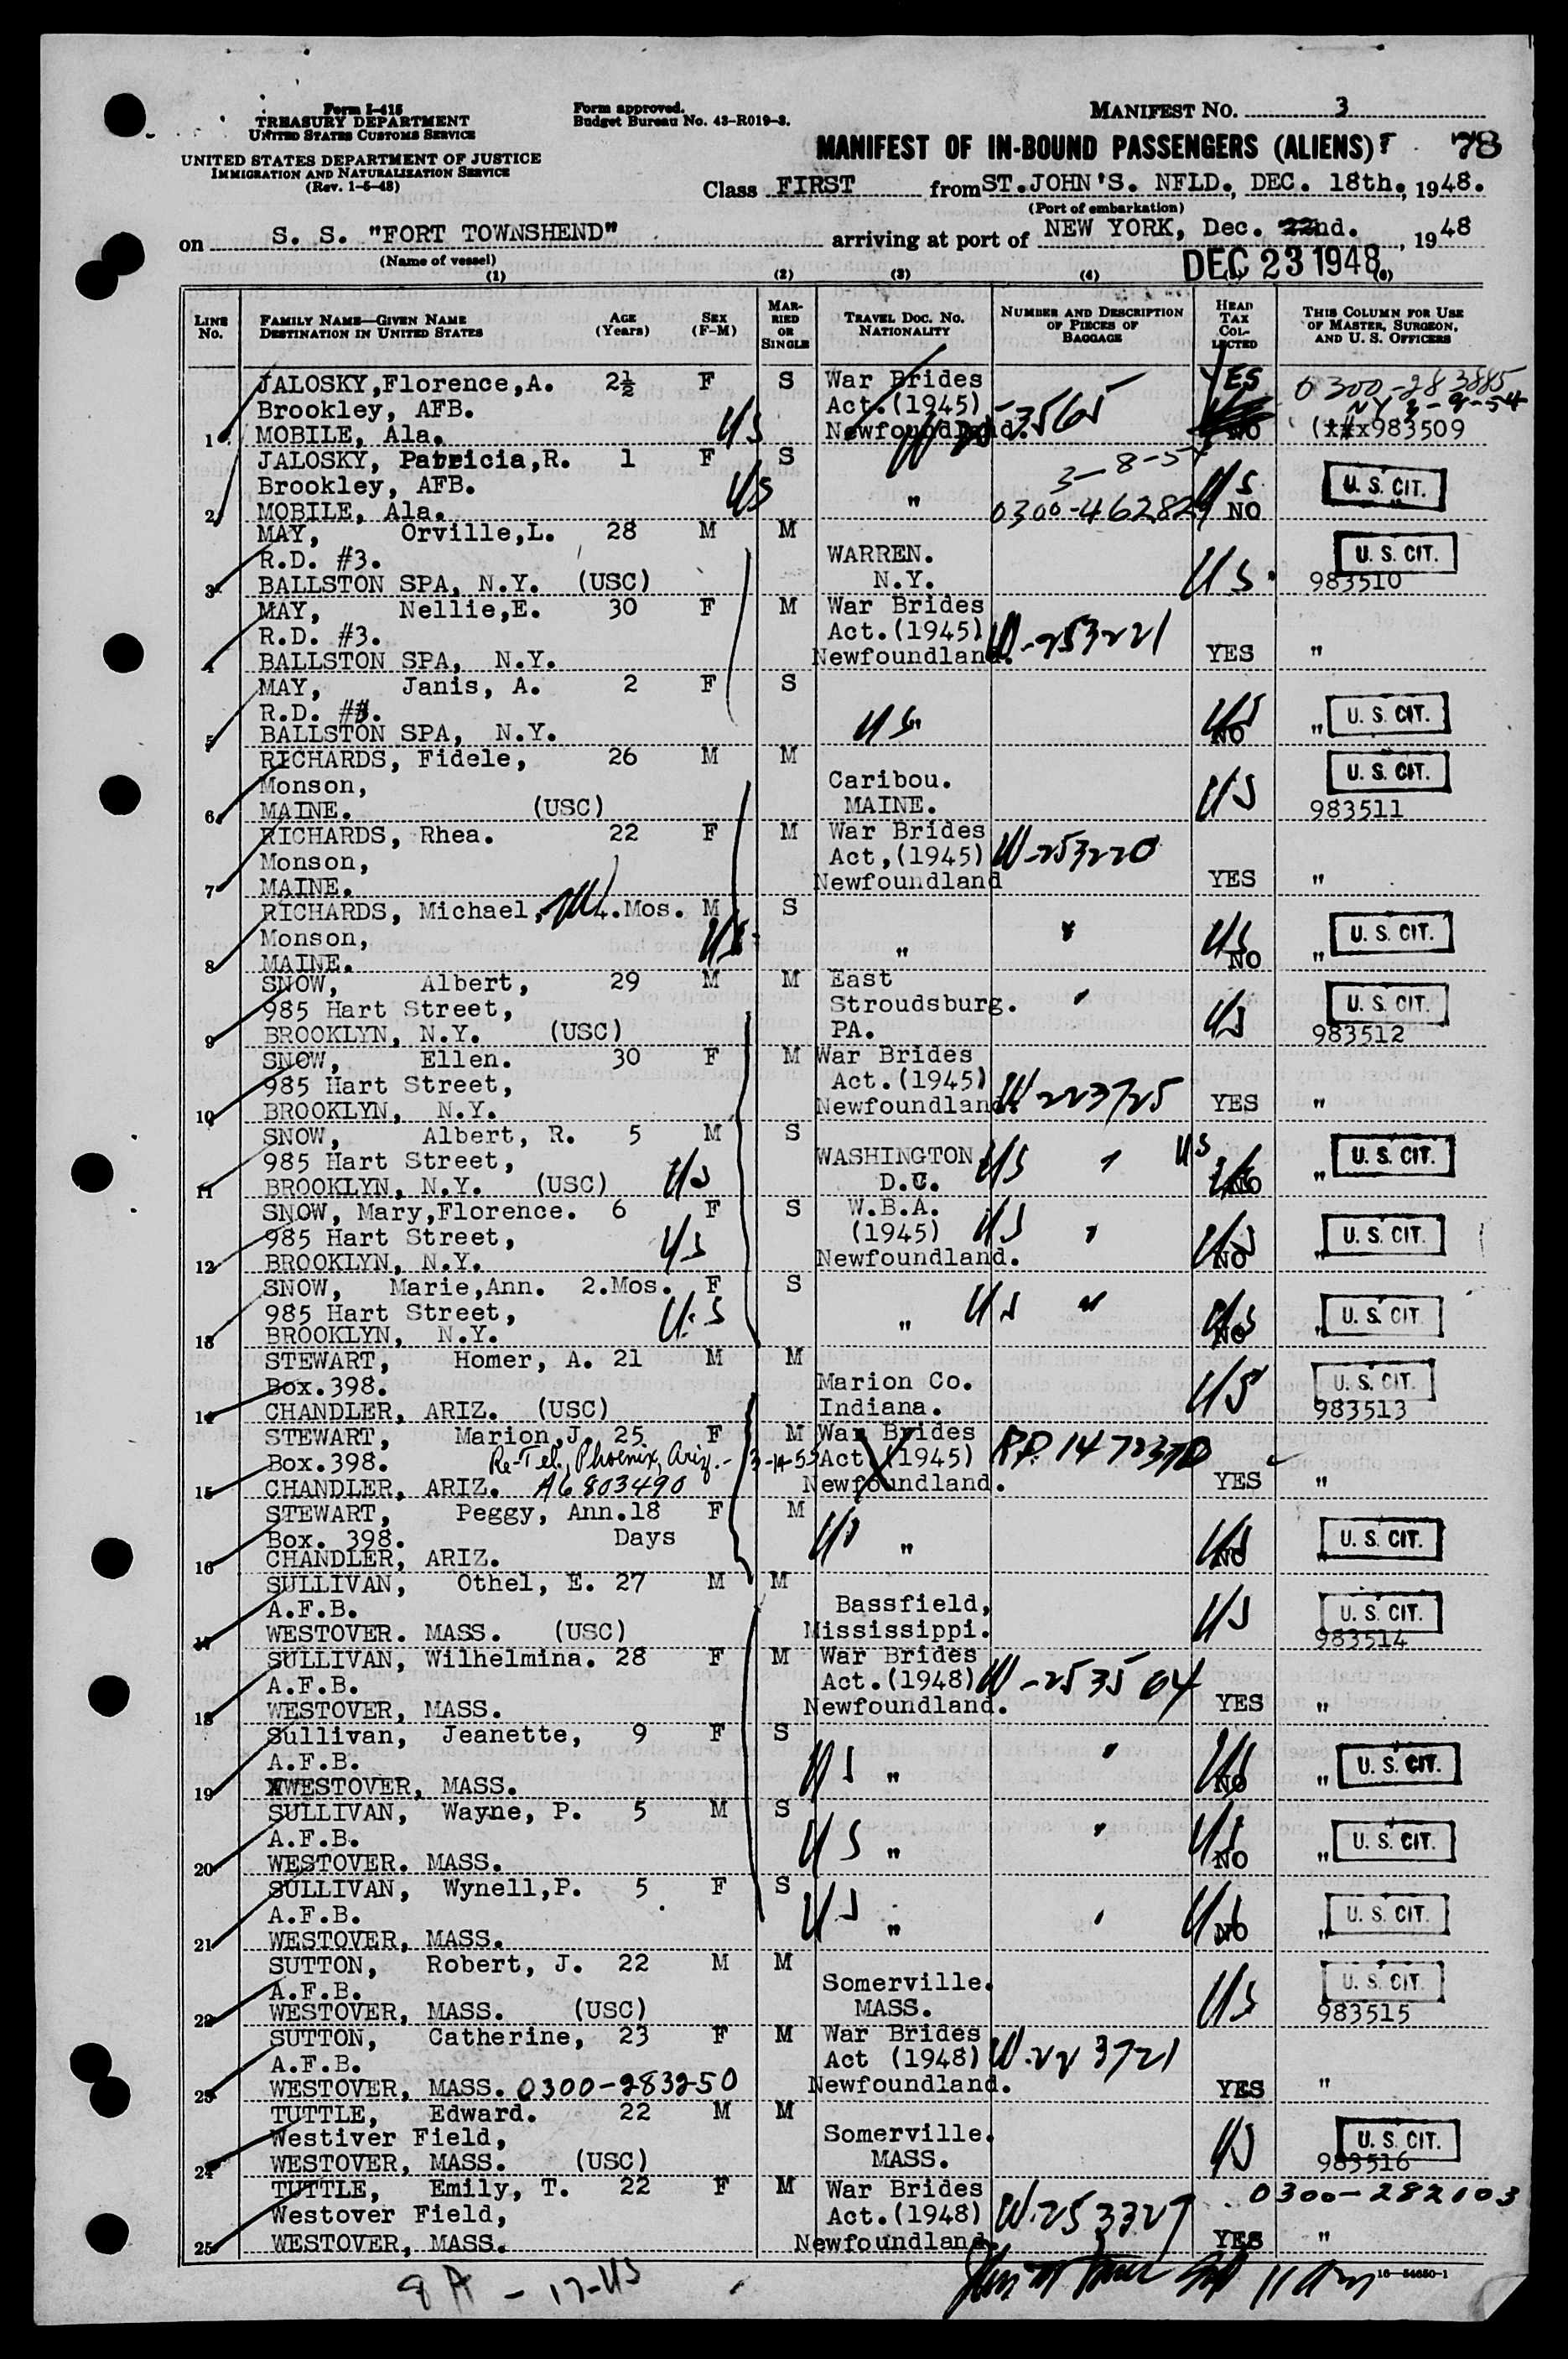 Form I-415
TREASURY DEPARTMENT
UNITED STATES CUSTOMS SERVICE
Form approved.
Budget Bureau No. 43-R019-3.
MANIFEST NO. 3
UNITED STATES DEPARTMENT OF JUSTICE
IMMIGRATION AND NATURALIZATION SERVICE
(Rev. 1-5-48)
MANIFEST OF IN-BOUND PASSENGERS (ALIENS) 78
Class FIRST from ST.JOHN'S. NFLD., DEC. 18th., 1948.
(Port of embarkation)
on S. S. "FORT TOWNSHEND" arriving at port of NEW YORK, Dec. 22nd., 1948
(Name of vessel)
DEC 23 1948
(1) (2) (3) (4) (6)
LINE No. FAMILY NAME—GIVEN NAME DESTINATION IN UNITED STATES AGE (Years) SEX (F-M) MARRIED OR SINGLE TRAVEL DOC. NO. NATIONALITY NUMBER AND DESCRIPTION OF PIECES OF BAGGAGE HEAD TAX COLLECTED THIS COLUMN FOR USE OF MASTER, SURGEON, AND U. S. OFFICERS
JALOSKY,Florence,A. 2½ F S War Brides YES 0300-283885
Brookley, AFB. Act.(1945) 53565 NY 3-9-54
1 MOBILE, Ala. US Newfoundland. NO (xxx983509
JALOSKY, Patricia,R. 1 F S 3-8-54
Brookley, AFB. US " US U. S. CIT.
2 MOBILE, Ala. 0300-462829 NO
MAY, Orville,L. 28 M M
R.D. #3. WARREN. U. S. CIT.
3 BALLSTON SPA, N.Y. (USC) N.Y. US 983510
MAY, Nellie,E. 30 F M War Brides
R.D. #3. Act.(1945) W-253221
4 BALLSTON SPA, N.Y. Newfoundland. YES "
MAY, Janis, A. 2 F S
R.D. #3. US US U. S. CIT.
5 BALLSTON SPA, N.Y. NO "
RICHARDS, Fidele, 26 M M
Monson, Caribou. U. S. CIT.
6 MAINE. (USC) MAINE. US 983511
RICHARDS, Rhea. 22 F M War Brides
Monson, Act,(1945) W-253220
7 MAINE. Newfoundland YES "
RICHARDS, Michael, 4.Mos. M S
Monson, US " US U. S. CIT.
8 MAINE. " NO "
SNOW, Albert, 29 M M East
985 Hart Street, Stroudsburg. U. S. CIT.
9 BROOKLYN, N.Y. (USC) PA. US 983512
SNOW, Ellen. 30 F M War Brides
985 Hart Street, Act.(1945) W 223725
10 BROOKLYN, N.Y. Newfoundland. YES "
SNOW, Albert, R. 5 M S
985 Hart Street, WASHINGTON US US U. S. CIT.
11 BROOKLYN, N.Y. (USC) US D.C. NO "
SNOW, Mary,Florence. 6 F S W.B.A.
985 Hart Street, US (1945) US US U. S. CIT.
12 BROOKLYN, N.Y. Newfoundland. NO "
SNOW, Marie,Ann. 2.Mos. F S
985 Hart Street, US " US US U. S. CIT.
13 BROOKLYN, N.Y. NO "
STEWART, Homer, A. 21 M M
Box.398. Marion Co. US U. S. CIT.
14 CHANDLER, ARIZ. (USC) Indiana. 983513
STEWART, Marion,J. 25 F M War Brides
Box.398. Re-Tel. Phoenix, Ariz.- 3-14-55 Act.(1945) R.P. 1472370
15 CHANDLER, ARIZ. A6803490 Newfoundland. YES "
STEWART, Peggy, Ann.18 F M
Box. 398. Days US " US U. S. CIT.
16 CHANDLER, ARIZ. NO "
SULLIVAN, Othel, E. 27 M M
A.F.B. Bassfield, US U. S. CIT.
17 WESTOVER. MASS. (USC) Mississippi. 983514
SULLIVAN, Wilhelmina. 28 F M War Brides
A.F.B. Act.(1948) W-253504
18 WESTOVER, MASS. Newfoundland. YES "
Sullivan, Jeanette, 9 F S
A.F.B. US " " US U. S. CIT.
19 XWESTOVER, MASS. NO "
SULLIVAN, Wayne, P. 5 M S
A.F.B. US " US U. S. CIT.
20 WESTOVER. MASS. NO "
SULLIVAN, Wynell,P. 5 F S
A.F.B. US " US U. S. CIT.
21 WESTOVER, MASS. NO "
SUTTON, Robert, J. 22 M M
A.F.B. Somerville. US U. S. CIT.
22 WESTOVER, MASS. (USC) MASS. 983515
SUTTON, Catherine, 23 F M War Brides
A.F.B. Act (1948) W-223721
23 WESTOVER, MASS. 0300-283250 Newfoundland. YES "
TUTTLE, Edward. 22 M M
Westiver Field, Somerville. US U. S. CIT.
24 WESTOVER, MASS. (USC) MASS. 983516
TUTTLE, Emily, T. 22 F M War Brides 0300-282103
Westover Field, Act.(1948) W-253327
25 WESTOVER, MASS. Newfoundland. YES "
8A - 17-US 11 Am 16—54650-1